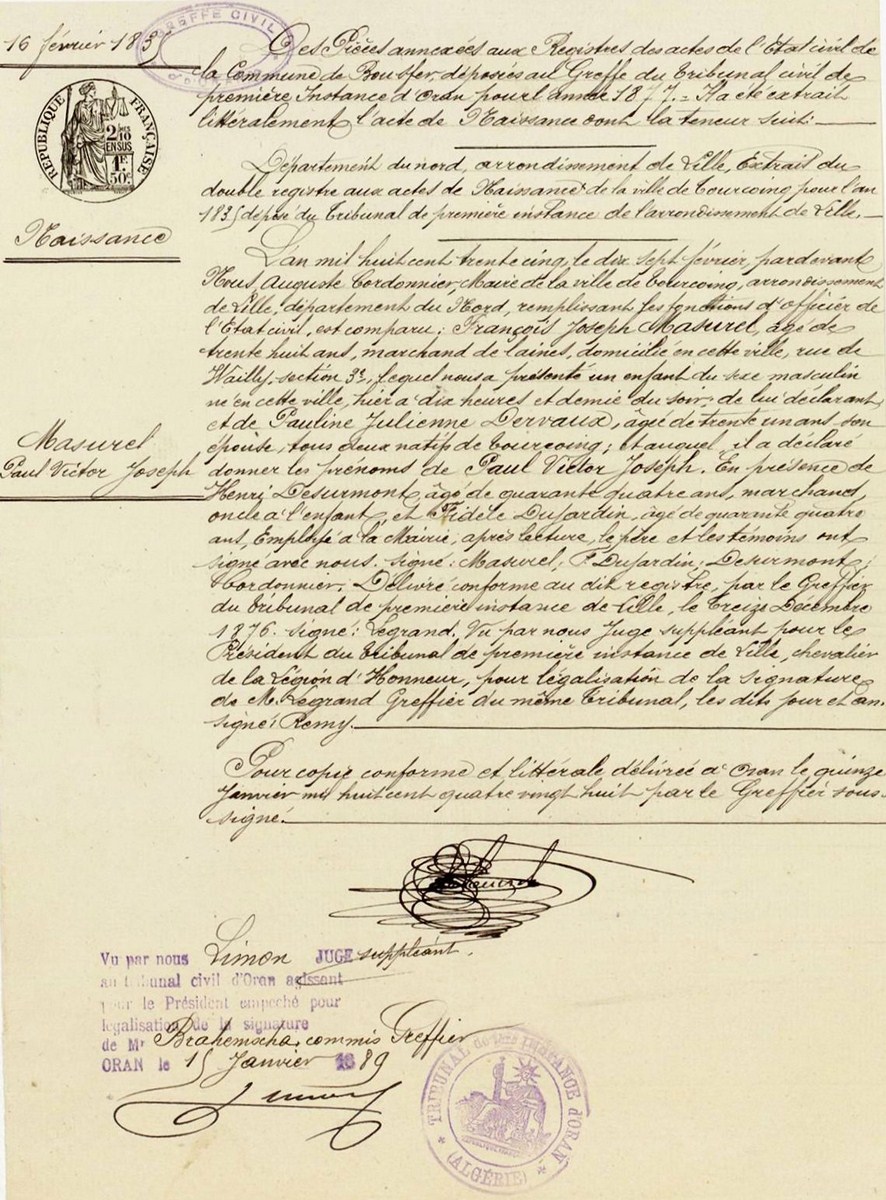 16 février 1835
GREFFE CIVIL
Des Pièces annexées aux Registres des actes de l'Etat civil de
la Commune de Bousfer, déposées au Greffe du Tribunal civil de
première Instance d'Oran pour l'année 1877. Il a été extrait
littéralement l'acte de Naissance dont la teneur suit.
RÉPUBLIQUE FRANÇAISE
2/10 EN SUS
1F 50c
Département du nord, arrondissement de Lille, Extrait du
double registre aux actes de Naissance de la ville de Tourcoing pour l'an
1835 déposé du Tribunal de première instance de l'arrondissement de Lille.
Naissance
L'an mil huit cent trente cinq, le dix sept février, pardevant
Nous, Auguste Cordonnier, Maire de la ville de Tourcoing, arrondissement
de Lille, département du Nord, remplissant les fonctions d'officier de
l'Etat civil, est comparu: François Joseph Masurel, âgé de
trente huit ans, marchand de laines, domicilié en cette ville, rue de
Wailly, section 3e, lequel nous a présenté un enfant du sexe masculin
né en cette ville, hier à dix heures et demie du soir, de lui déclarant
et de Pauline Julienne Dervaux, âgée de trente un ans, son
épouse, tous deux natifs de Tourcoing; et auquel il a déclaré
donner les prénoms de Paul Victor Joseph. En présence de
Masurel
Paul Victor Joseph
Henri Desurmont, âgé de quarante quatre ans, marchand,
oncle à l'enfant, et Fidèle Dujardin, âgé de quarante quatre
ans, Employé à la Mairie, après lecture, le père et les témoins ont
signé avec nous. Signé: Masurel, F. Dujardin, Desurmont;
Cordonnier. Délivré conforme au dit registre, par le Greffier
du Tribunal de première instance de Lille, le Treize Décembre
1876. signé: Legrand. Vu par nous Juge suppléant pour le
Président du Tribunal de première instance de Lille, chevalier
de la Légion d'Honneur, pour légalisation de la signature
de M. Legrand Greffier du même Tribunal, les dits jour et an.
signé: Remy.
Pour copie conforme et littérale délivrée à Oran le quinze
Janvier mil huit cent quatre vingt huit par le Greffier sous-
signé.
Vu par nous Limon JUGE suppléant.
au tribunal civil d'Oran agissant
pour le Président empeché pour
legalisation de la signature
de Mr Brahemscha, commis Greffier
ORAN le 15 Janvier 1889
TRIBUNAL de 1ère INSTANCE d'ORAN
(ALGÉRIE)